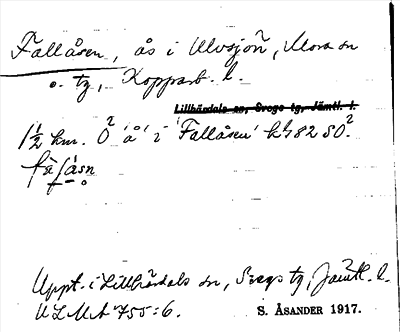 Fallåsen, ås i Ulvsjön, Mora sn
o. tg, Kopparb. l.
Lillhärdals sn, Svegs tg, Jämtl. l.
1½ km. O² 'å' i 'Fallåsen' kbl 82 SO².
Uppt. i Lillhärdals sn, Svegs tg, Jämtl. l.
ULMA 755:6.
S. ÅSANDER 1917.